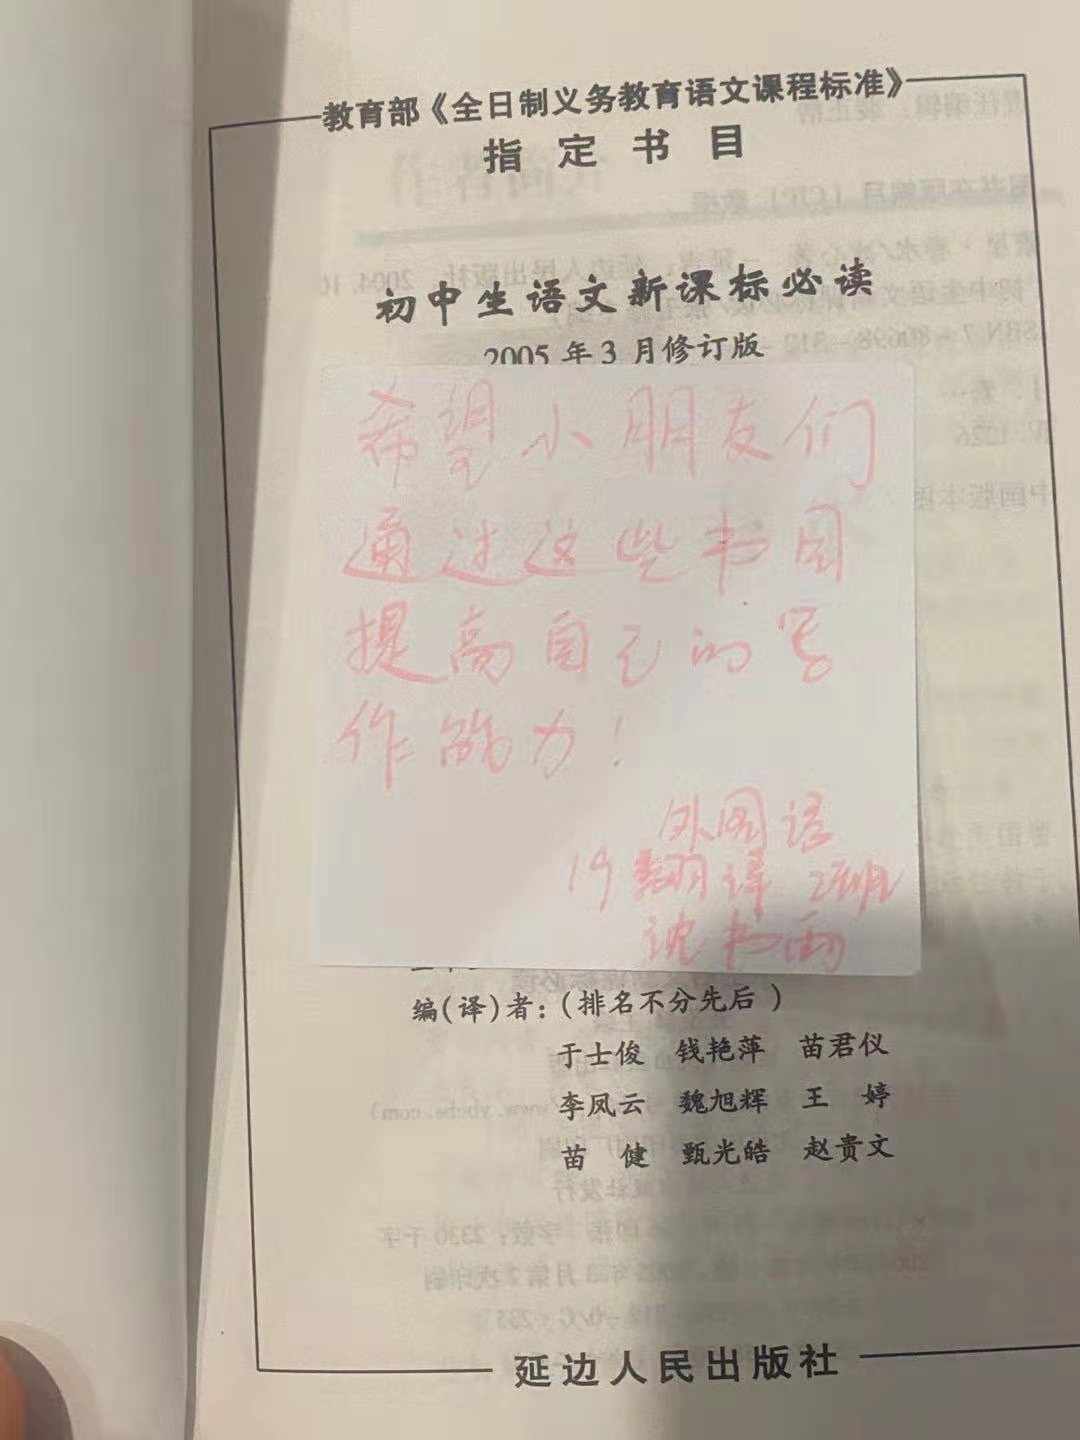 教育部《全日制义务教育语文课程标准》
指定书目
初中生语文新课标必读
2005年3月修订版
希望小朋友们
通过这些书目
提高自己的写
作能力！
外国语
19翻译2班
沈书雨
编(译)者：(排名不分先后)
于士俊 钱艳萍 苗君仪
李凤云 魏旭辉 王 婷
苗 健 甄光皓 赵贵文
延边人民出版社